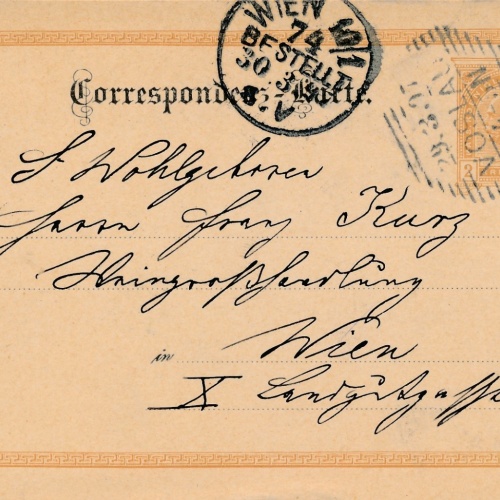 WIEN 10/1
74
BESTELLT
30.3.
Correspondenz-Karte.
S. Wohlgeboren
Herrn Franz Kurz
Weingroßhandlung
in Wien
X Landgutgasse